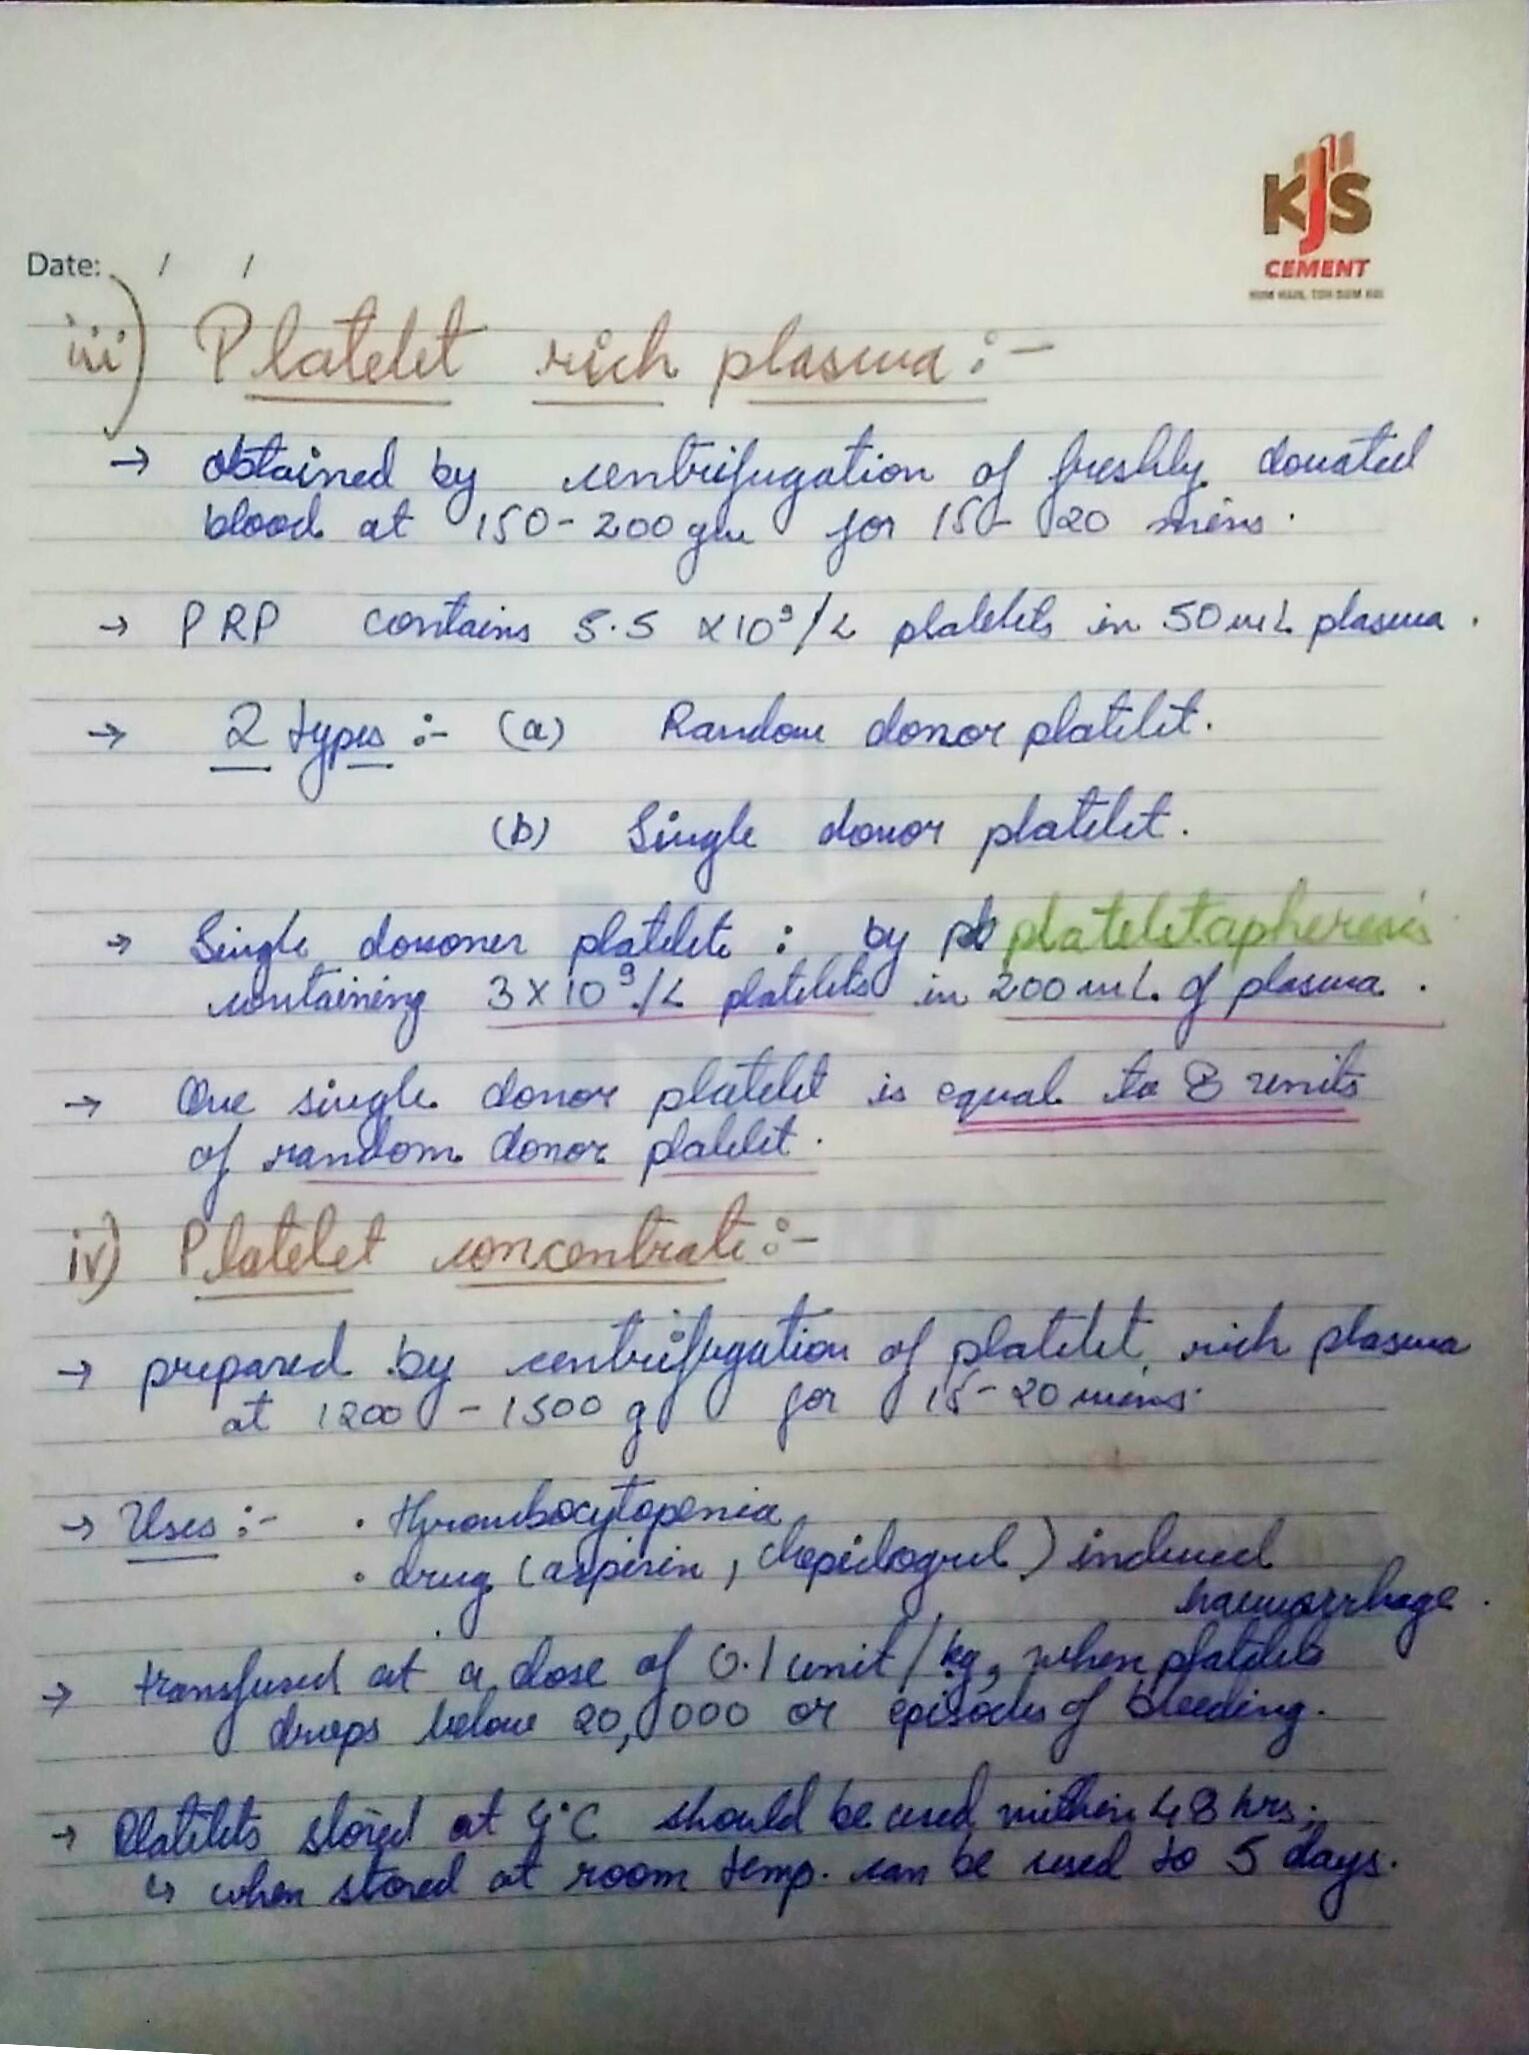 KJS
CEMENT
Date: / /
iii) Platelet rich plasma :-
→ obtained by centrifugation of freshly donated
blood at 150-200 gm for 15-20 mins.
→ PRP contains 5.5 x10⁹/L platelets in 50 mL plasma.
→ 2 types :- (a) Random donor platelet.
(b) Single donor platelet.
→ Single dononer platelete : by plateletapheresis
containing 3×10⁹/L platelets in 200 mL of plasma.
→ One single donor platelet is equal to 8 units
of random donor platelet.
iv) Platelet concentrate :-
→ prepared by centrifugation of platelet rich plasma
at 1200-1500 g for 15-20 mins.
→ Uses :- • thrombocytopenia
• drug (aspirin, clopidogrel) induced
haemorrhage.
→ transfused at a dose of 0.1 unit/kg, when platelets
drops below 20,000 or episodes of bleeding.
→ Platelets stored at 4°C should be used within 48 hrs;
↳ when stored at room temp. can be used to 5 days.